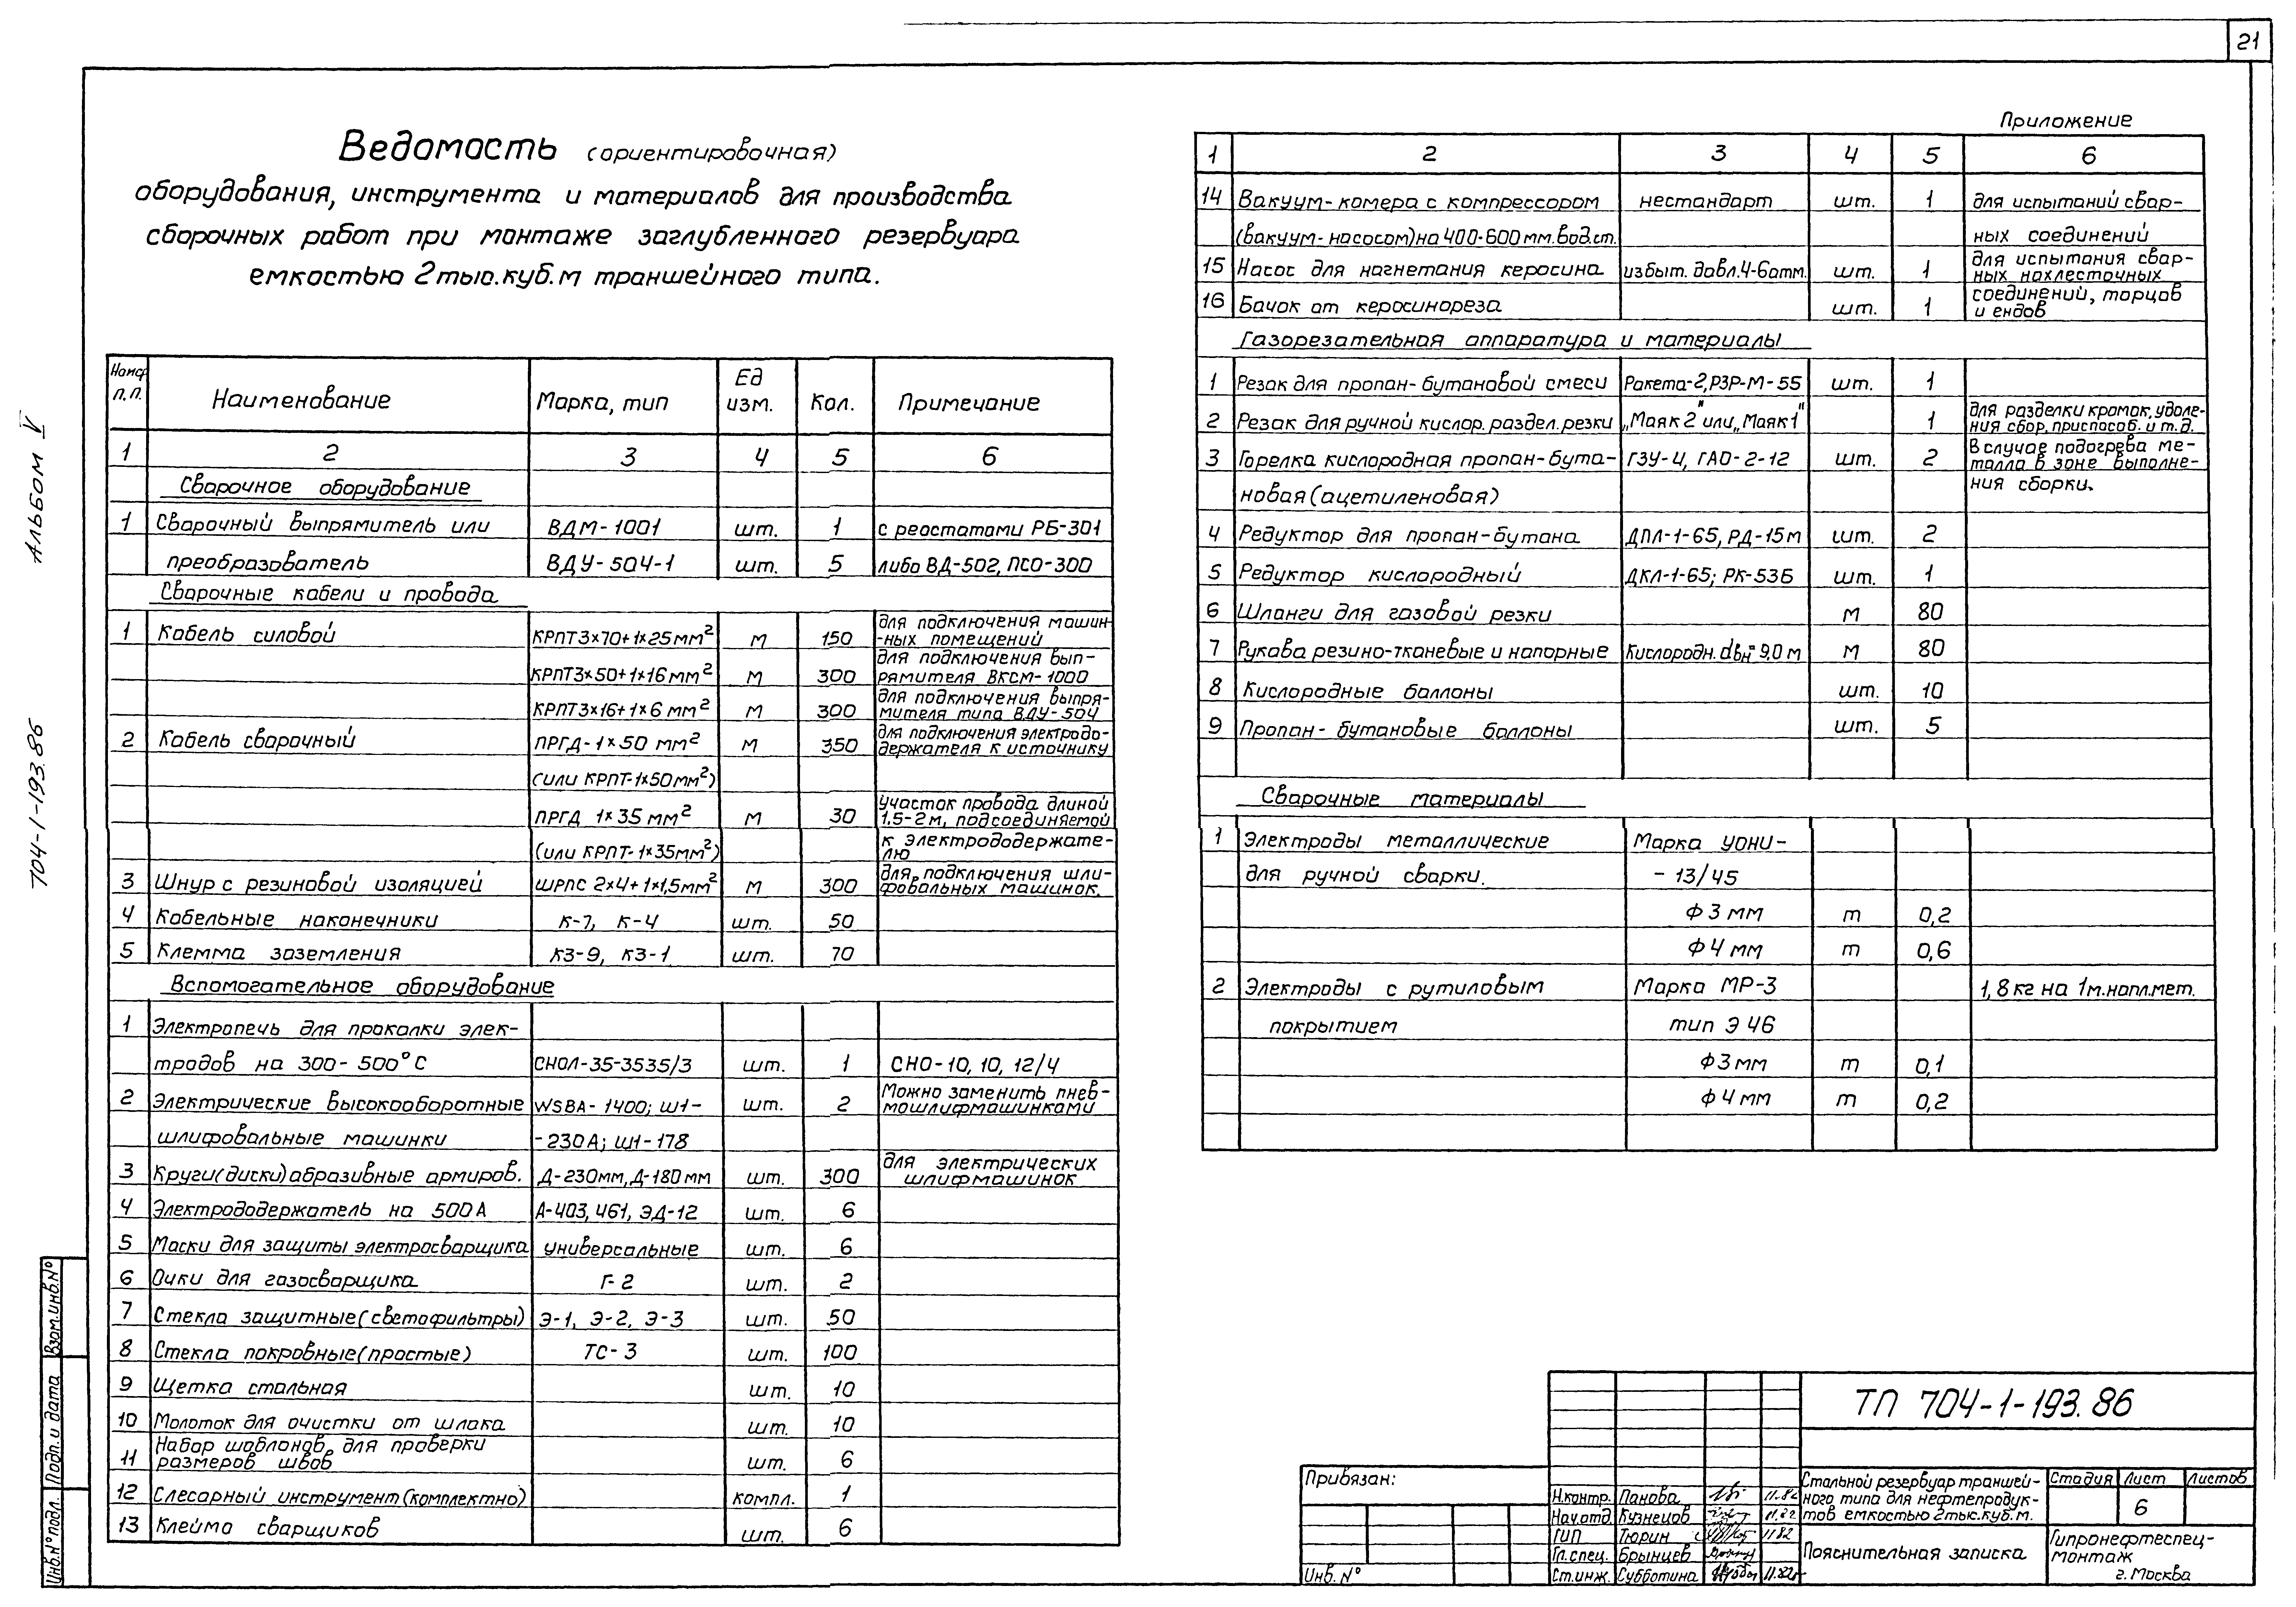 21
Альбом V
704-1-193.86
Ведомость (ориентировочная)
оборудования, инструмента и материалов для производства
сборочных работ при монтаже заглубленного резервуара
емкостью 2 тыс.куб.м траншейного типа.
Номер п.п. Наименование Марка, тип Ед изм. Кол. Примечание
1 2 3 4 5 6
Сварочное оборудование
1 Сварочный выпрямитель или ВДМ-1001 шт. 1 с реостатами РБ-301
преобразователь ВДУ-504-1 шт. 5 либо ВД-502, ПСО-300
Сварочные кабели и провода
1 Кабель силовой КРПТ3×70+1×25мм² м 150 для подключения машин-
-ных помещений
КРПТ3×50+1×16мм² м 300 для подключения вып-
рямителя ВКСМ-1000
КРПТ3×16+1×6 мм² м 300 для подключения выпря-
мителя типа ВДУ-504
2 Кабель сварочный ПРГД-1×50 мм² м 350 для подключения электродо-
держателя к источнику
(или КРПТ-1×50мм²)
ПРГД 1×35 мм² м 30 участок провода длиной
1.5-2м, подсоединяемой
(или КРПТ-1×35мм²) к электрододержате-
лю
3 Шнур с резиновой изоляцией ШРПС 2×4+1×1,5мм² м 300 для подключения шли-
фовальных машинок.
4 Кабельные наконечники К-7, К-4 шт. 50
5 Клемма заземления КЗ-9, КЗ-1 шт. 70
Вспомогательное оборудование
1 Электропечь для прокалки элек-
тродов на 300-500°С СНОЛ-35-3535/3 шт. 1 СНО-10, 10, 12/4
2 Электрические высокооборотные WSBA-1400; Ш1- шт. 2 Можно заменить пнев-
мошлифмашинками
шлифовальные машинки -230А; Ш1-178
3 Круги(диски)абразивные армиров. Д-230мм, Д-180мм шт. 300 для электрических
шлифмашинок
4 Электрододержатель на 500А А-403, 461, ЭД-12 шт. 6
5 Маски для защиты электросварщика универсальные шт. 6
6 Очки для газосварщика Г-2 шт. 2
7 Стекла защитные(светофильтры) Э-1, Э-2, Э-3 шт. 50
8 Стекла покровные(простые) ТС-3 шт. 100
9 Щетка стальная шт. 10
10 Молоток для очистки от шлака шт. 10
11 Набор шаблонов для проверки
размеров швов шт. 6
12 Слесарный инструмент(комплектно) компл. 1
13 Клеймо сварщиков шт. 6
Приложение
1 2 3 4 5 6
14 Вакуум-камера с компрессором нестандарт шт. 1 для испытаний свар-
(вакуум-насосом)на 400-600 мм.вод.ст. ных соединений
15 Насос для нагнетания керосина избыт. давл.4-6атм. шт. 1 для испытания свар-
ных нахлесточных
16 Бачок от керосинореза шт. 1 соединений, торцов
и ендов
Газорезательная аппаратура и материалы
1 Резак для пропан-бутановой смеси Ракета-2, РЗР-М-55 шт. 1
2 Резак для ручной кислор. раздел. резки „Маяк 2" или „Маяк 1" 1 для разделки кромок, удале-
ния сбор. приспособ. и т.д.
3 Горелка кислородная пропан-бута- ГЗУ-4, ГАО-2-12 шт. 2 В случае подогрева ме-
талла в зоне выполне-
новая(ацетиленовая) ния сборки.
4 Редуктор для пропан-бутана ДПЛ-1-65, РД-15м шт. 2
5 Редуктор кислородный ДКЛ-1-65; РК-53Б шт. 1
6 Шланги для газовой резки м 80
7 Рукава резино-тканевые и напорные Кислородн. dвн=9,0 м м 80
8 Кислородные баллоны шт. 10
9 Пропан-бутановые баллоны шт. 5
Сварочные материалы
1 Электроды металлические Марка УОНИ-
для ручной сварки. -13/45
Ф 3 мм т 0,2
Ф 4 мм т 0,6
2 Электроды с рутиловым Марка МР-3 1,8 кг на 1м.напл.мет.
покрытием тип Э 46
Ф 3 мм т 0,1
Ф 4 мм т 0,2
ТП 704-1-193.86
Привязан:
Инв. №
Н.контр. Панова 11.82
Нач.отд. Кузнецов 11.82
ГИП Тюрин 11.82
Гл.спец. Брынцев
Ст.инж. Субботина 11.82г
Стальной резервуар траншей-
ного типа для нефтепродук-
тов емкостью 2тыс.куб.м.
Стадия Лист Листов
6
Пояснительная записка
Гипронефтеспец-
монтаж
г. Москва
Взам.инв.№
Подп. и дата
Инв.№ подл.